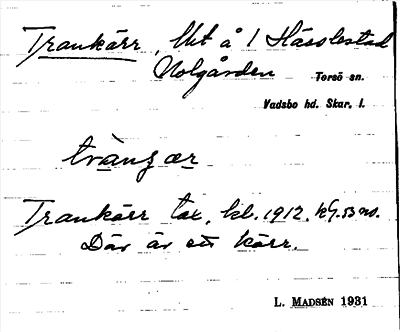 Trankärr, Utt å 1 Hässlestad
Nolgården Torsö sn.
Vadsbo hd. Skar. l.
Trankärr tax. bl. 1912. kg. 53 ns.
Där är ett kärr.
L. MADSÉN 1931